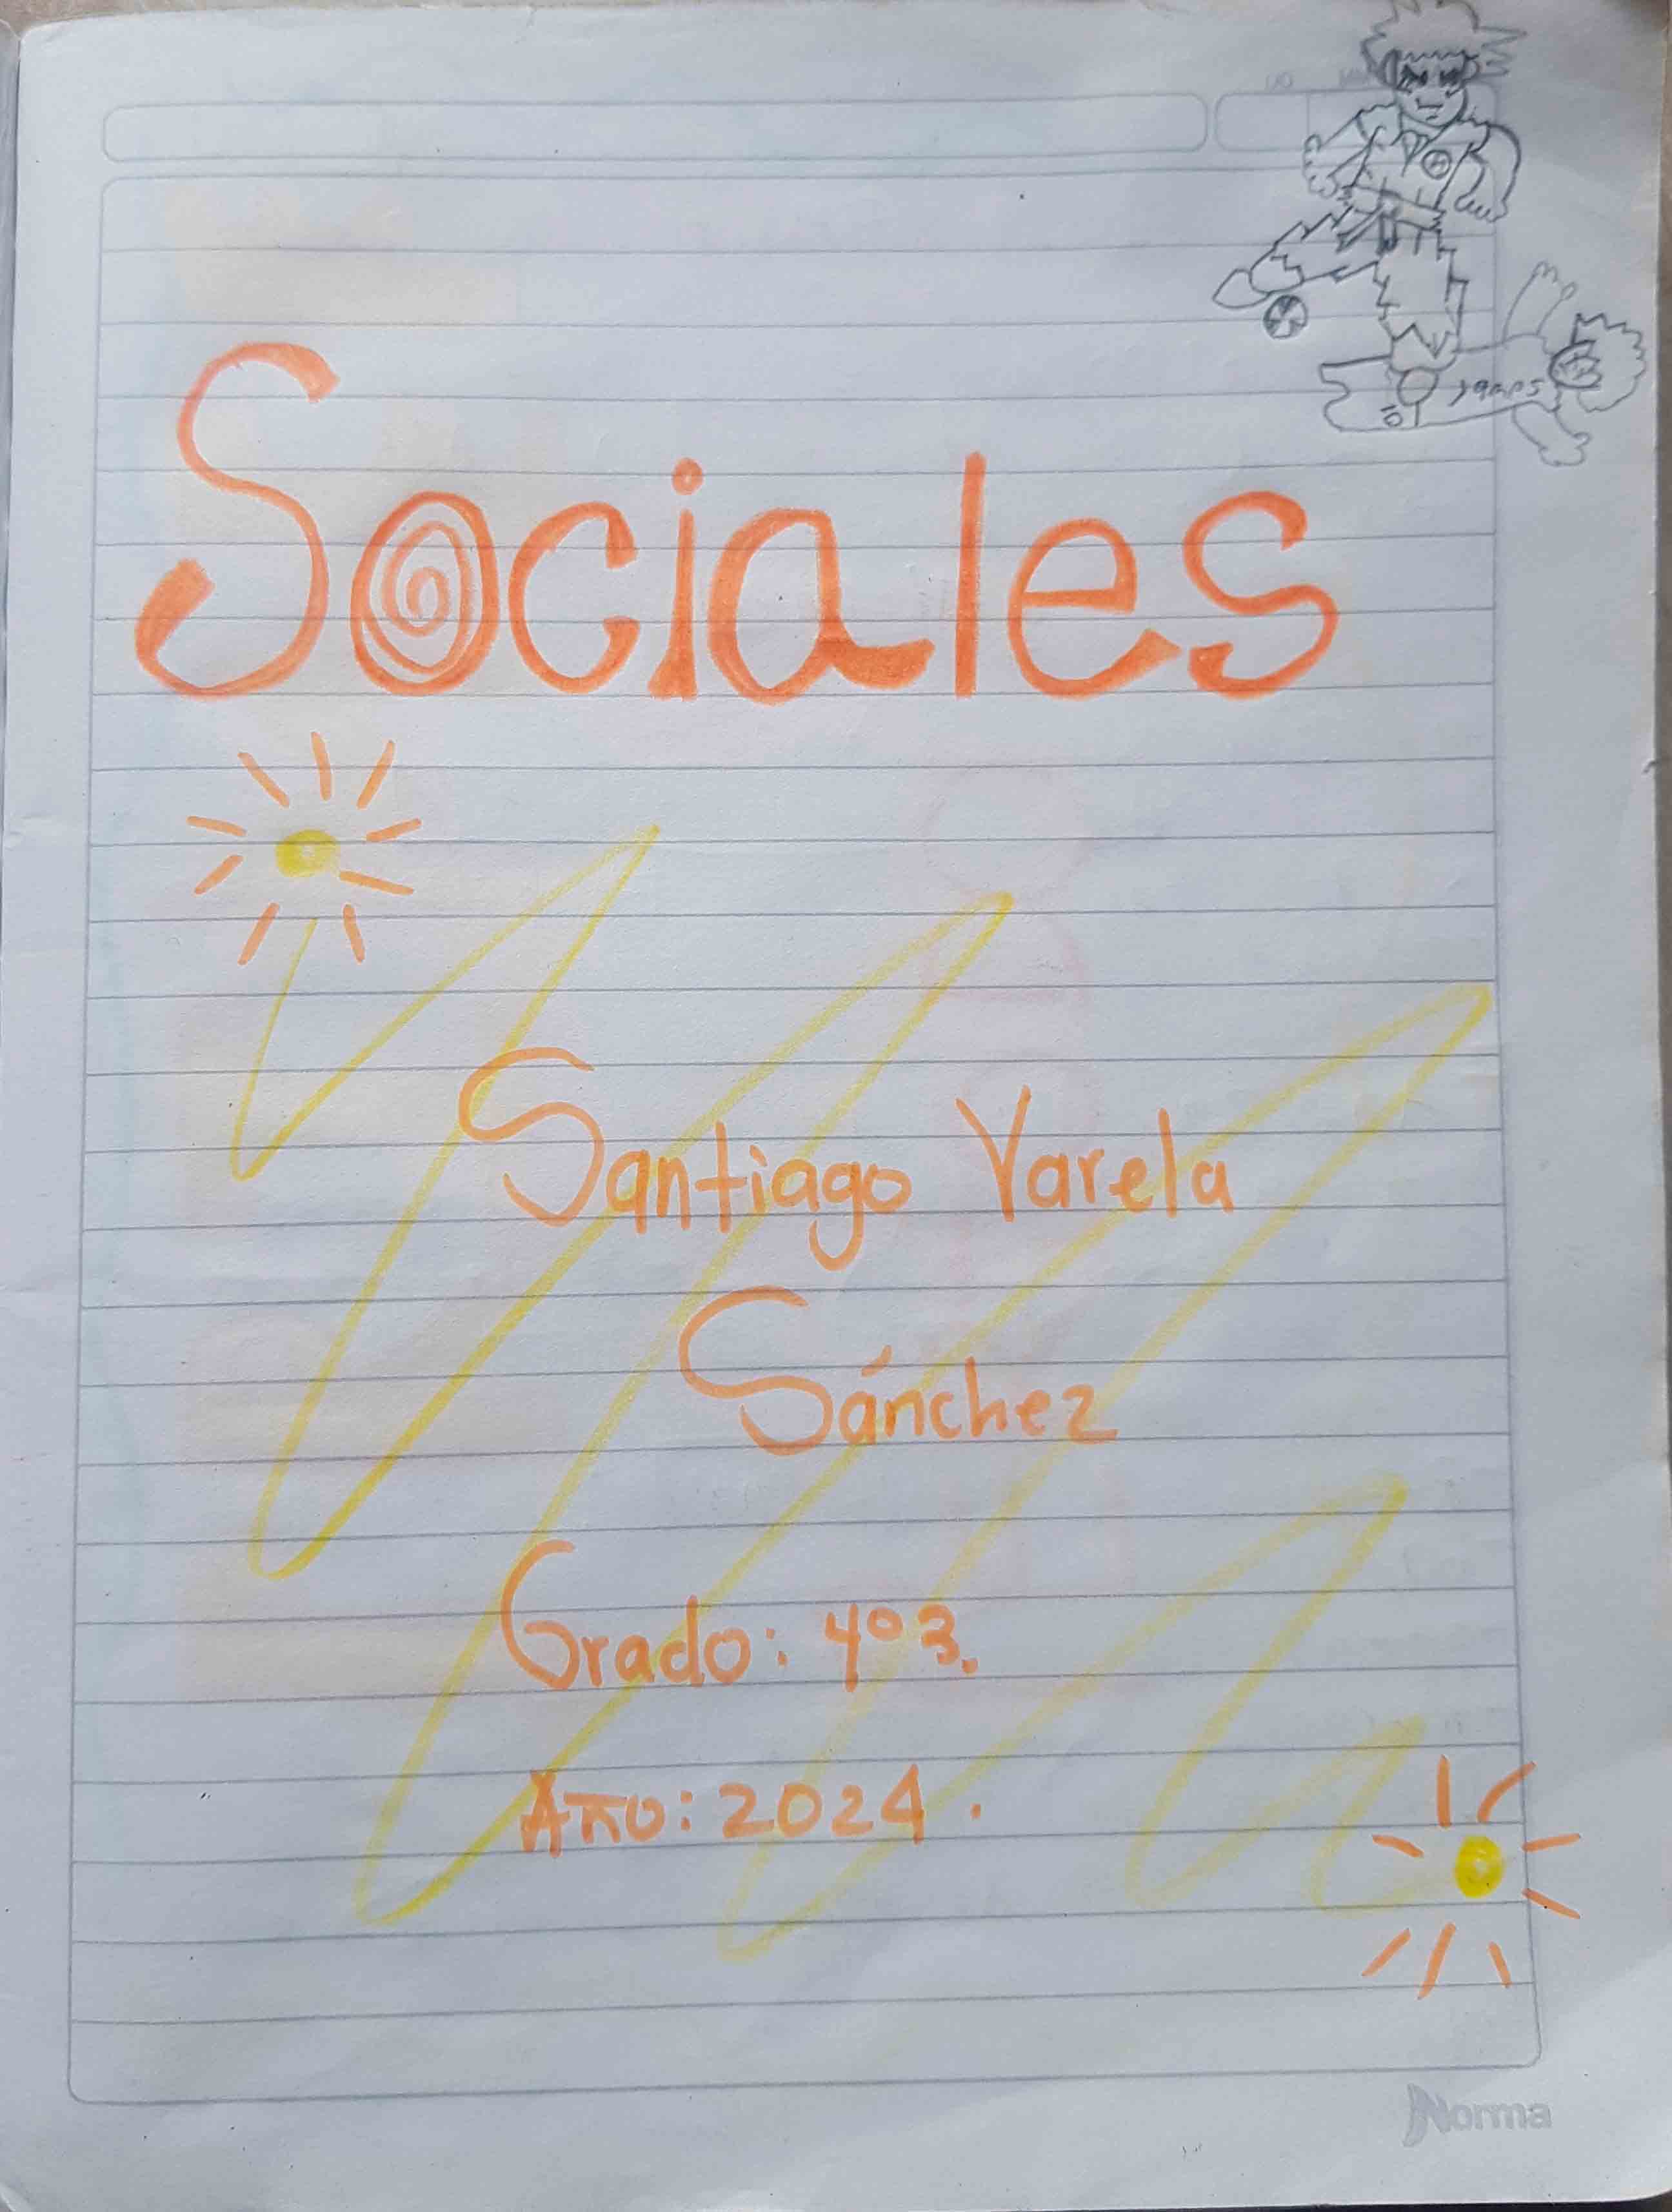 Sociales
Santiago Varela
Sánchez
Grado: 4º3.
Año: 2024.
Norma